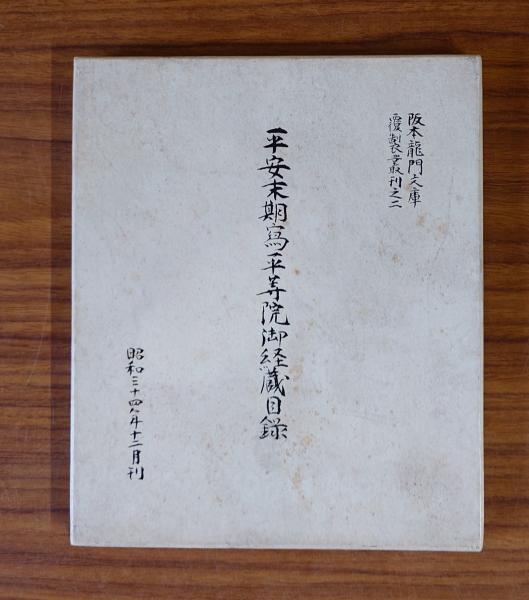 阪本龍門文庫
覆製叢刊之二
平安末期寫平等院御経蔵目録
昭和三十四年十二月刊